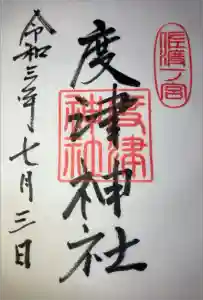 佐渡一ノ宮
度津神社
度津神社
令和三年七月三日